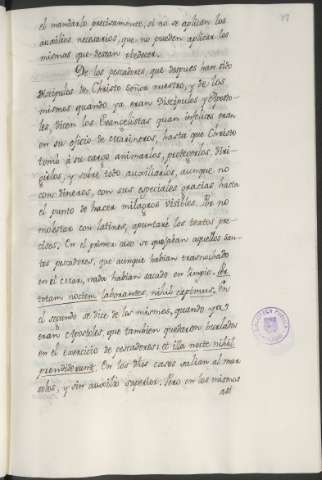 el mandarlo precisamente, si no se aplican los
auxilios necesarios, que no pueden aplicar los
mismos que desean obedecer.
De los pescadores, que despues han sido
Discipulos de Christo Señor nuestro, y de los
mismos quando ya eran Discipulos y Aposto-
les, dicen los Evangelistas quan infelices eran
en su oficio de marineros, hasta que Christo
tomó a su cargo animarlos, protegerlos, diri-
girlos, y sobre todo auxiliarlos, aunque no
con dineros, con sus especiales gracias hasta
el punto de hacer milagros visibles. Por no
molestar con latines, apuntaré los textos pre-
cisos. En el primer caso se quejaban aquellos
tes pescadores, que aunque habian trasnochado
en el mar, nada habian sacado en limpio. Per
totam noctem laborantes, nihil cepimus. En
el segundo se dice de los mismos, quando ya
eran Apostoles, que tambien quedaron burlados
en el exercicio de pescadores: et illa nocte nihil
prendiderunt. En los dos casos salian al mar
solos, y sin auxilio superior. Pero en los mismos